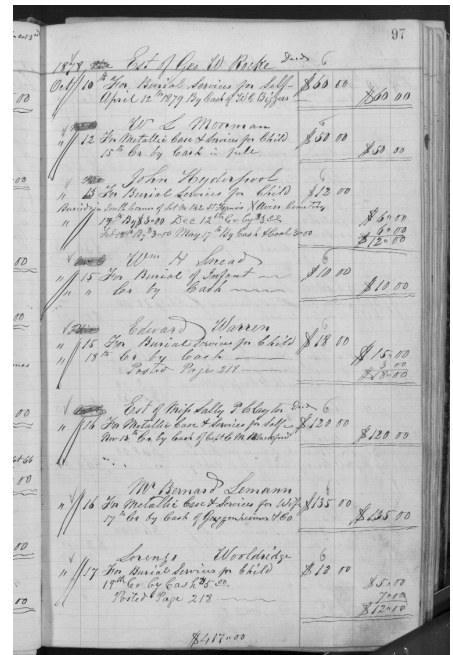 97
1878 Est of Geo W Rocke Decd 6
Oct 10th For Burial Services for Self $60 00
April 12th 1879 By Cash of $60 00
W L Moorman
" 12 For Metallic Case & Services for Child $50 00
15th Cr by Cash in full $50 00
John
" 13 For Burial Services for Child $12 00
Buried in South corner of lot No 142 St
19th By $3=00 Dec 12th Cr By $3=00 $6=00
By $3=00 May 17th By Cash 3=00 6=00
$12=00
Wm H
" 15 For Burial of Infant $10 00
" " Cr by Cash $10 00
Edward Warren
" 15 For Burial Services for Child $18 00
" 18th Cr by Cash $15=00
Posted Page 218 3 00
$18=00
Est of Miss Sally P Clayton Decd 6
" 16 For Metallic Case & Services for Self $120 00
Nov 13th Cr by Cash of Capt C M Blackford $120 00
" "
Mr Bernard Lemann 6
" 16 For Metallic Case & Services for Wife $135 00
17th Cr by Cash of Guggenheimer & Co $135 00
Lorenzo Wooldridge 6
" 17 For Burial Services for Child $12 00
19th Cr by Cash $5=00 $5=00
Posted Page 218 7=00
$12=00
$417=00